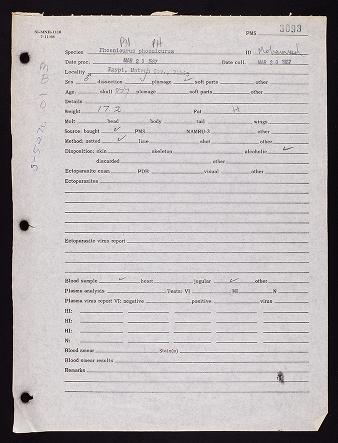 NI-MNH-1118
7-11/66
PMS 3093
PM PH
Species Phoenicurus phoenicurus ID Mohammed
Date proc. MAR 20 1967 Date coll. MAR 20 1967
Locality Egypt, Matruh
Sex ♂ dissection plumage ✓ soft parts other
Age: skull plumage soft parts other
Details
Weight 17.2 Fat H
Molt head body tail wings
Source: bought ✓ PMS NAMRU-3 other
Method: netted ✓ lime shot other
Disposition: skin skeleton alcoholic ✓
discarded other
Ectoparasite exam PDR visual other
Ectoparasites
Ectoparasite virus report
Blood sample ✓ heart jugular ✓ other
Plasma analysis Tests: VI HI N
Plasma virus report VI: negative positive virus
HI:
HI:
HI:
N:
Blood smear Slide(s)
Blood smear results
Remarks